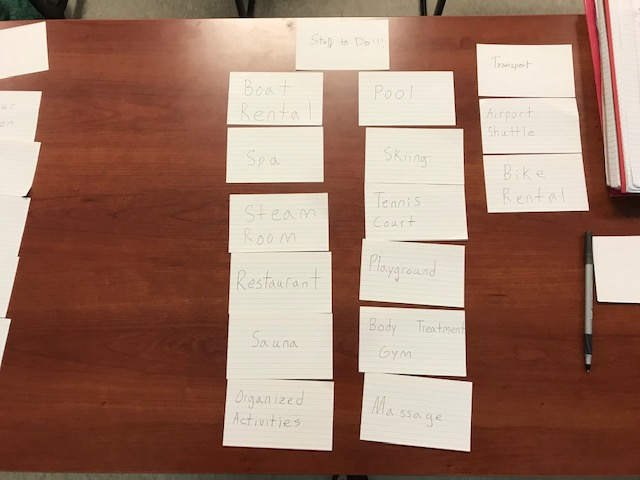 Stuff to Do!!!
Boat
Rental
Spa
Steam
Room
Restaurant
Sauna
Organized
Activities
Pool
Skiing
Tennis
Court
Playground
Body Treatment
Gym
Massage
Transport
Airport
Shuttle
Bike
Rental